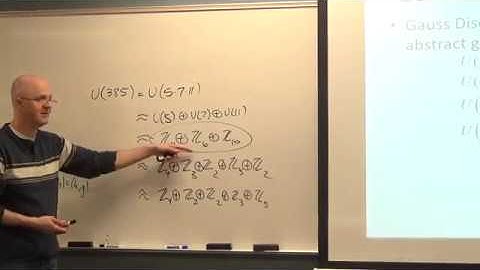 U(385) = U(5·7·11)
≈ U(5) ⊕ U(7) ⊕ U(11)
≈ ℤ₄ ⊕ ℤ₆ ⊕ ℤ₁₀
≈ ℤ₄ ⊕ ℤ₃ ⊕ ℤ₂ ⊕ ℤ₅ ⊕ ℤ₂
≈ ℤ₄ ⊕ ℤ₂ ⊕ ℤ₂ ⊕ ℤ₃ ⊕ ℤ₅
• Gauss
abstract